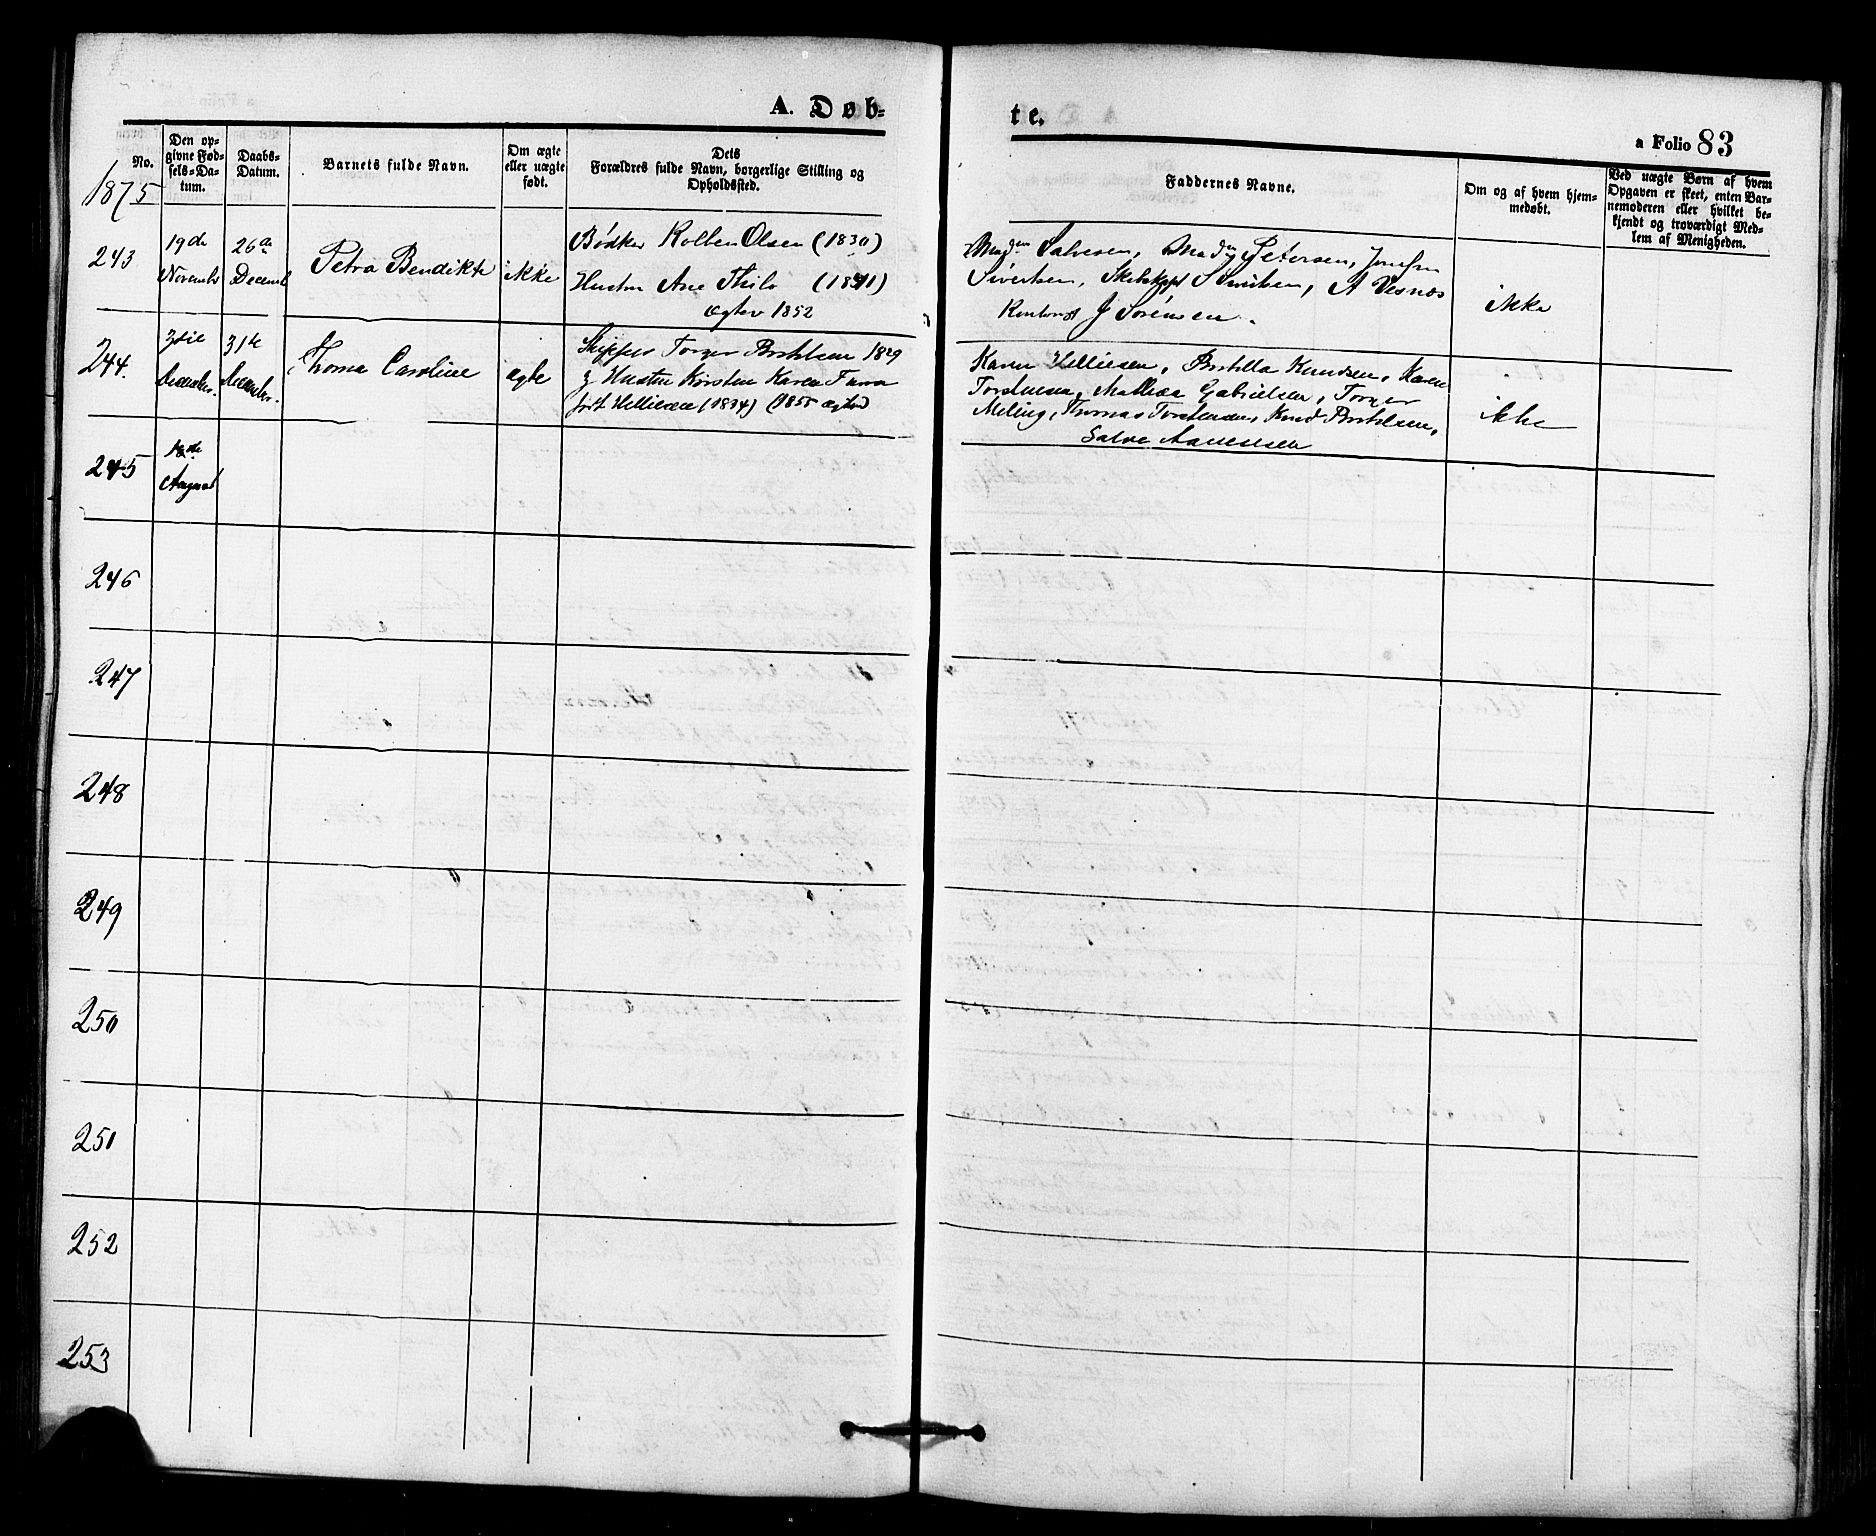 A. Døb-
te.
a Folio 83
No.
Den op-
givne Fød-
sels-Da-
tum.
Daabs-
Datum.
Barnets fulde Navn.
Om ægte
eller uægte
født.
Dets
Forældres fulde Navn, borgerlige Stilling og
Opholdssted.
Faddernes Navne.
Om og af hvem hjem-
medøbt.
Ved uægte Børn af hvem
Opgaven er skeet, enten Bar-
nemoderen eller hvilket be-
kjendt og troværdigt Med-
lem af Menigheden.
1875
243
19de
Novembr
26de
Decemb
Petra Bendikte
ikke
Bødker Kolben Olsen (1830)
Hustru Ane Thilo
ægtev 1852
Salvesen, Petersen, Jomfru
Sivertsen, A
J Sørensen.
ikke
244.
Decembr.
31te
Decembr.
Thoma Caroline
ægte
Skipper Torger Bertelsen 1829
g Hustru Kirsten Karen
født Helliesen (1834) (1855
Karen Helliesen, Knudsen, Karen
Torstensen, Mathea Gabrielsen, Torger
Meling, Thomas Torstensen, Knud Bertelsen,
Salve Aanensen
ikke
245
August
246
247
248
249
250
251
252
253